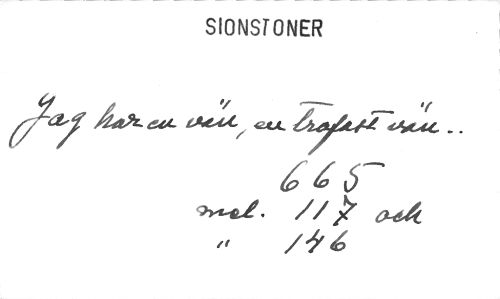 SIONSTONER
Jag har en vän, en trofast vän..
665
mel. 117 och
" 146